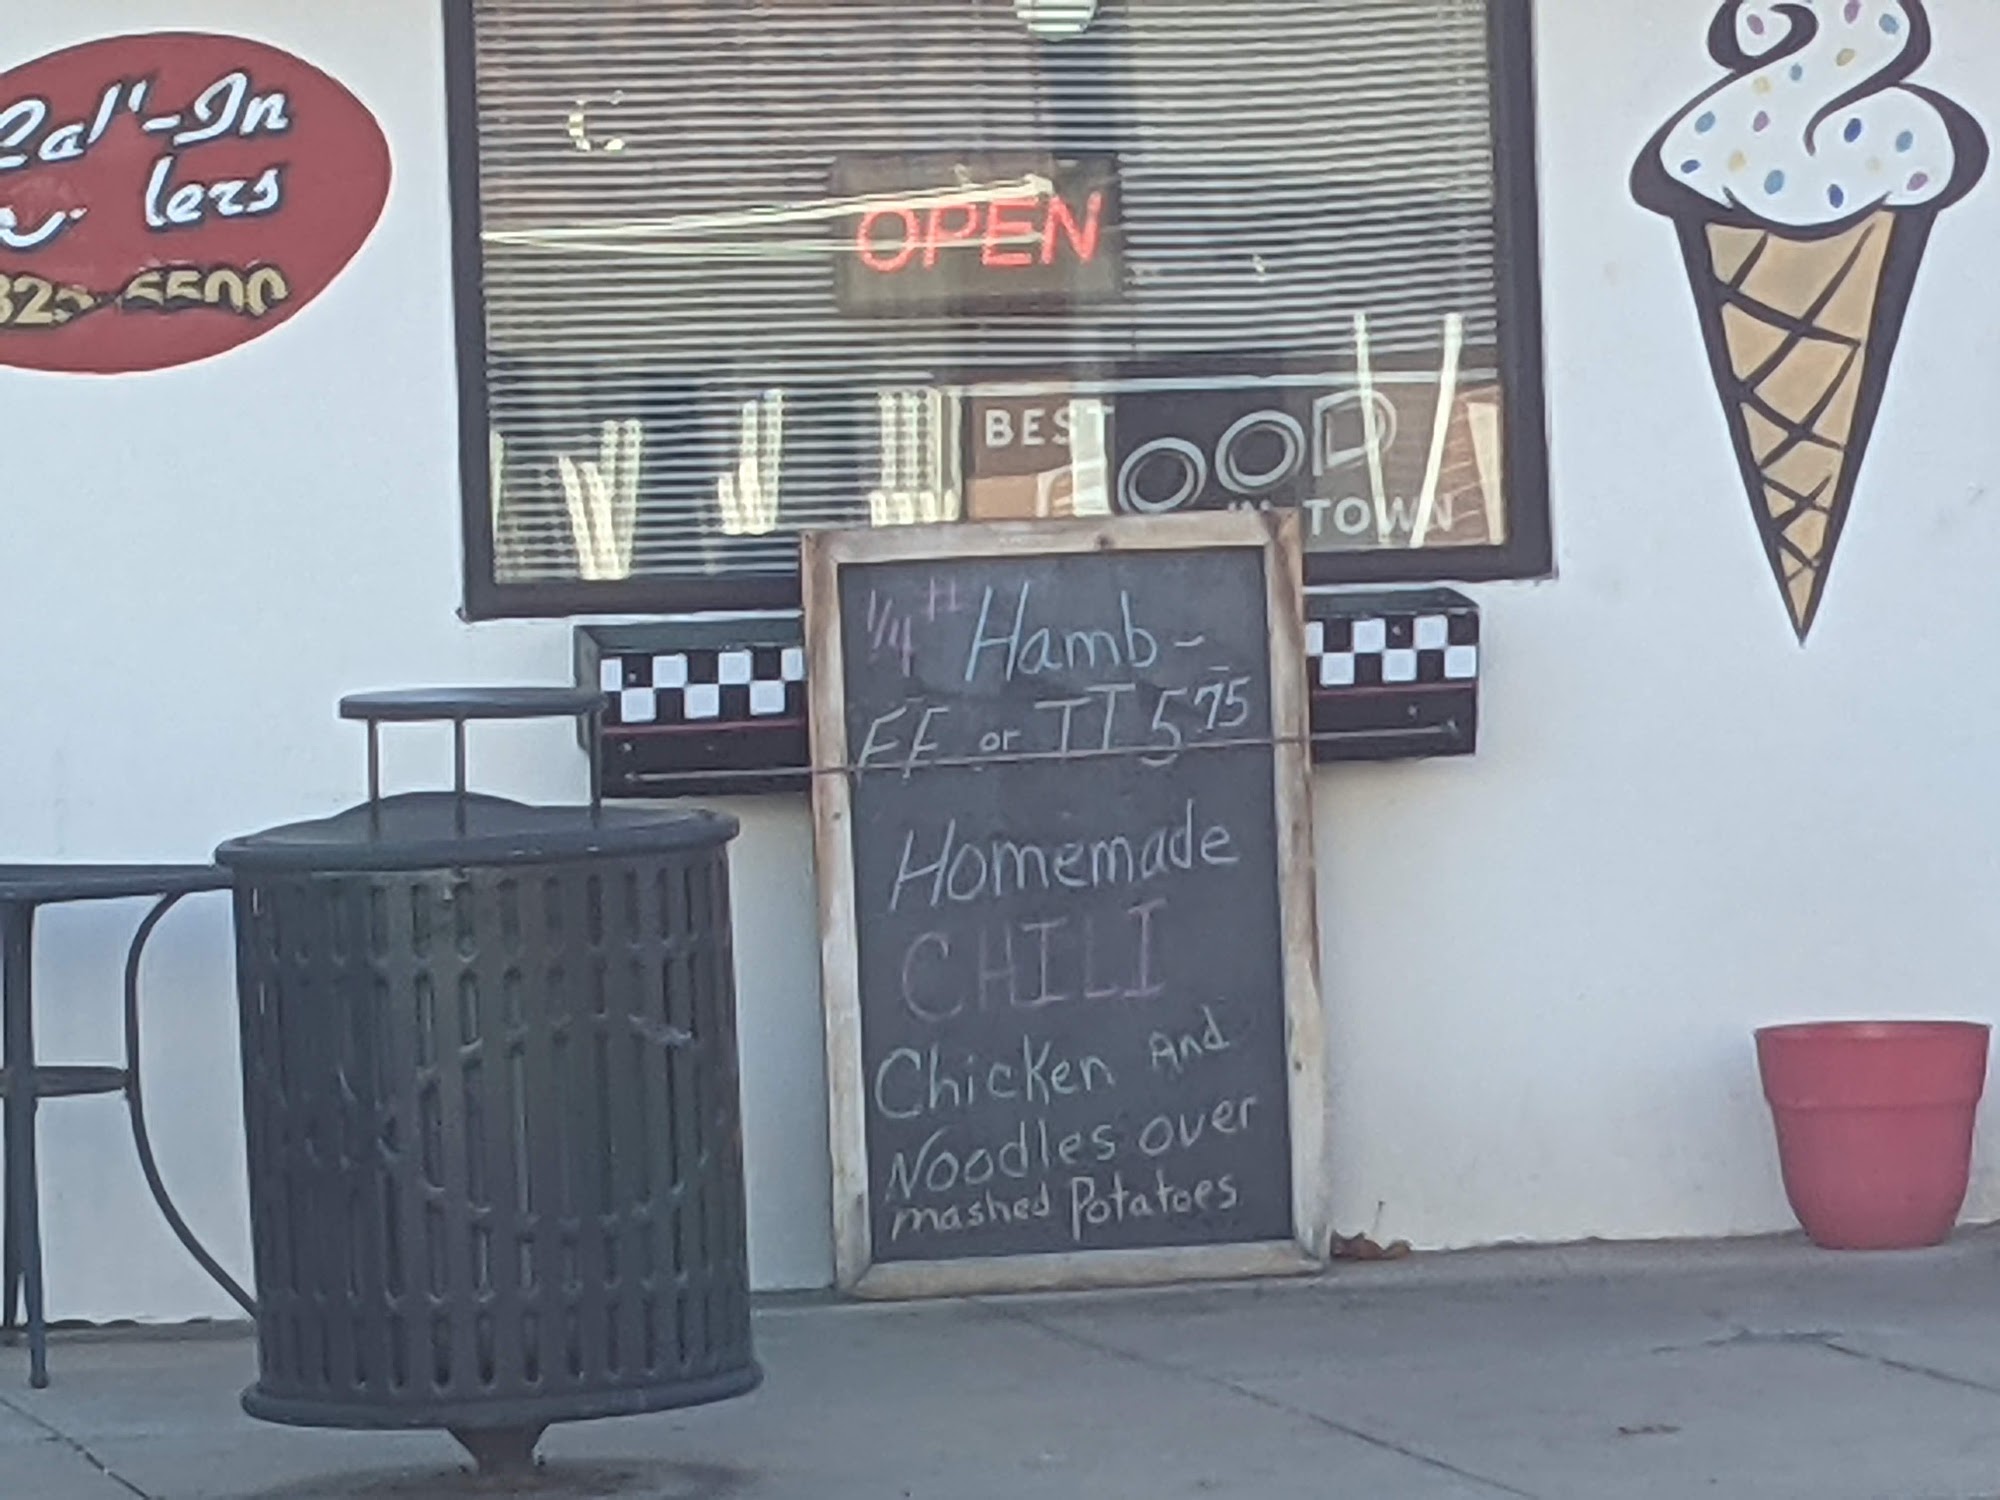 Cal'-In
lers
OPEN
BEST
OOD
IN TOWN
1/4 # Hamb -
FF or TT 5.75
Homemade
CHILI
Chicken And
Noodles over
mashed Potatoes